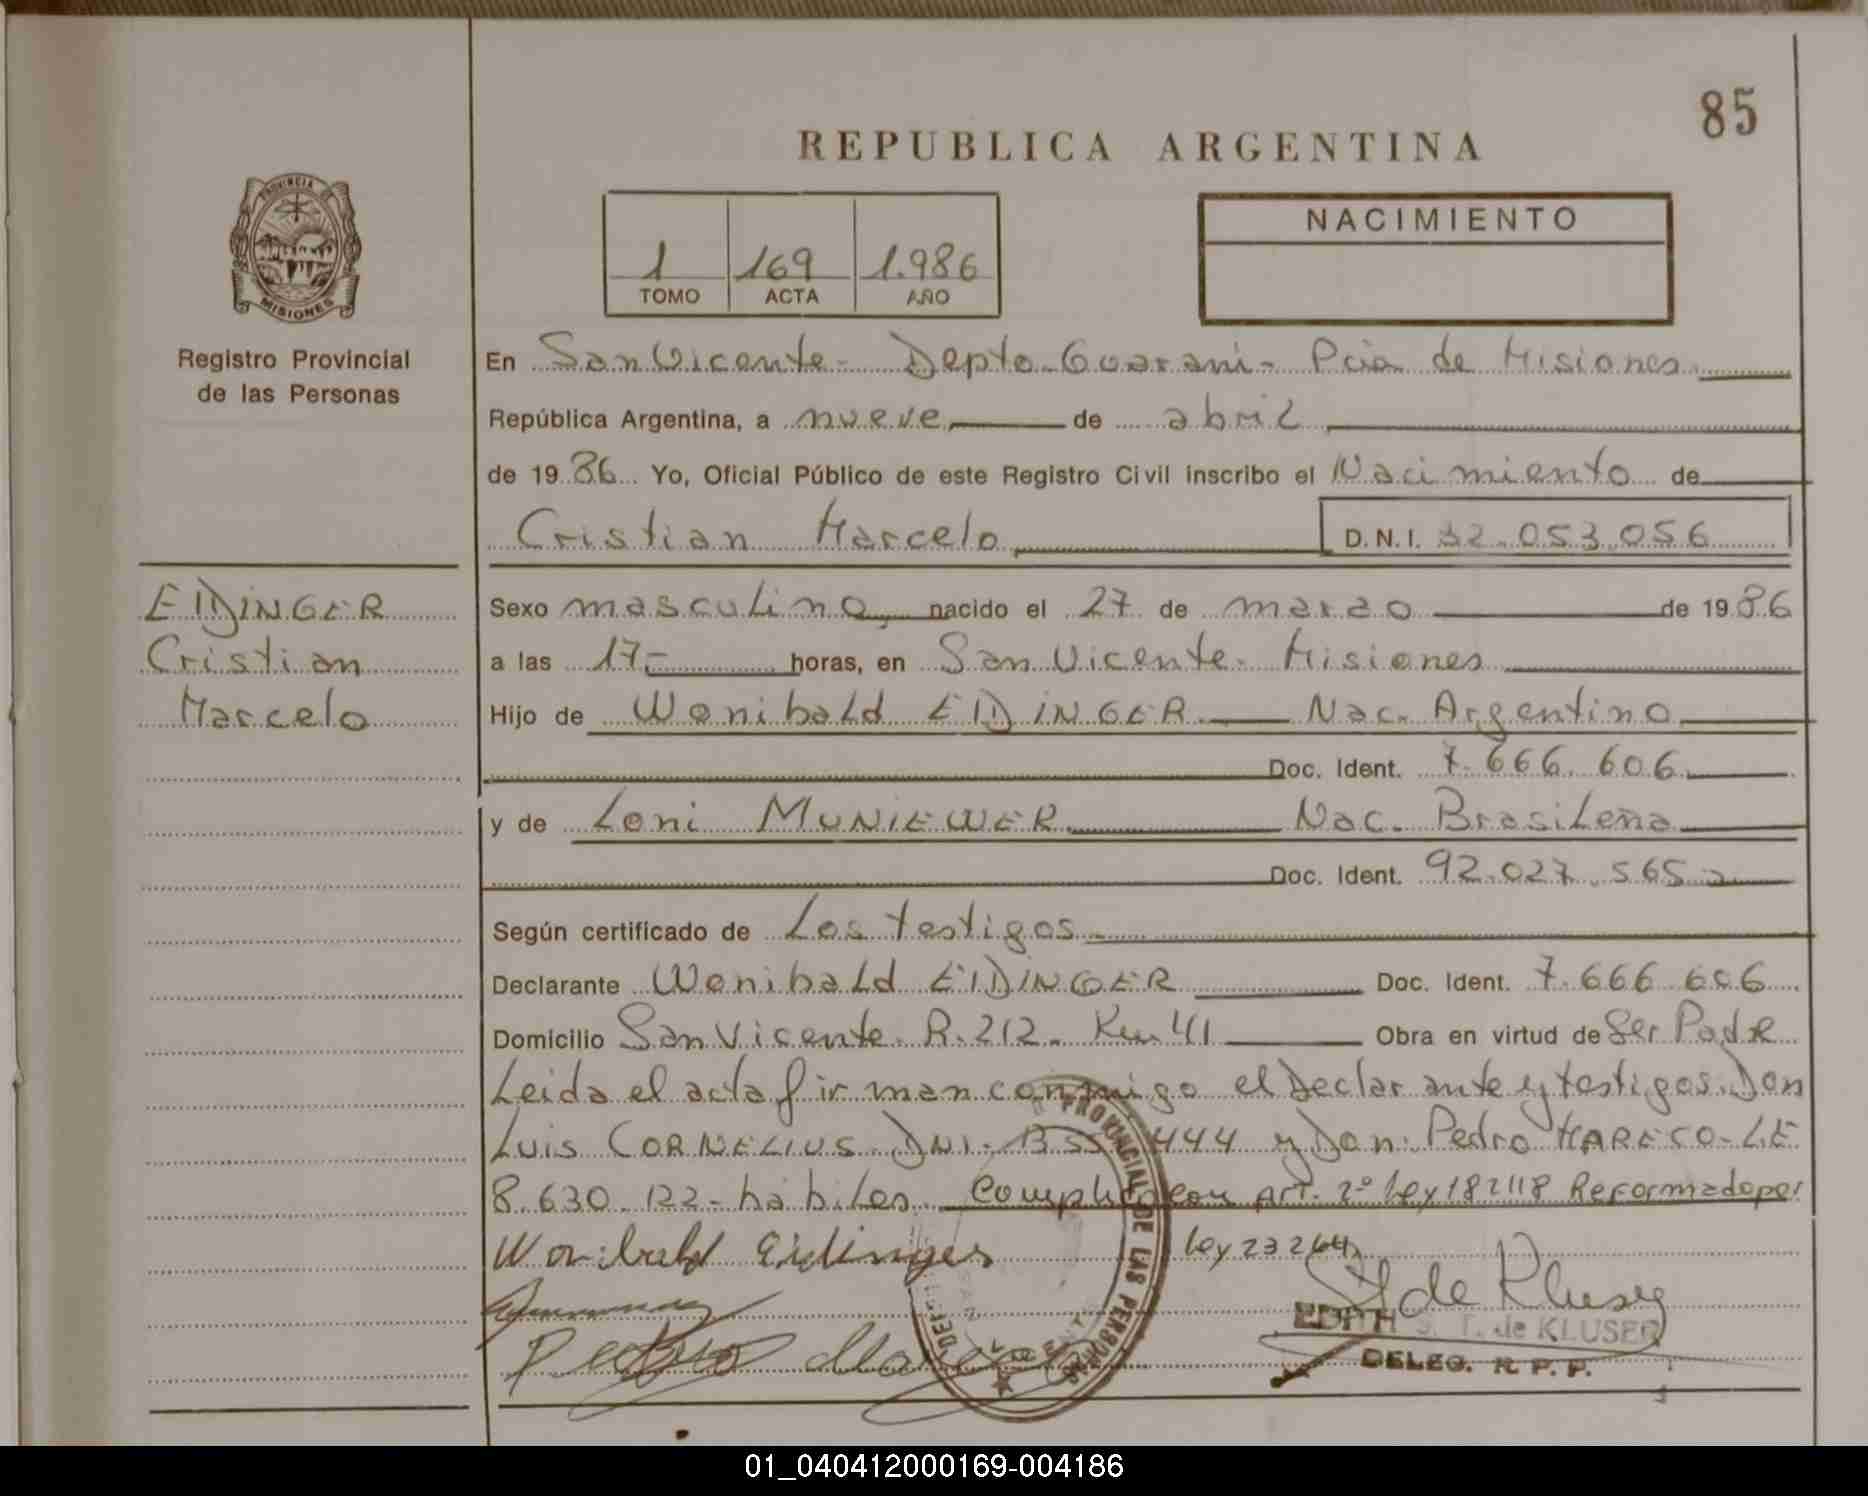 85
REPUBLICA ARGENTINA
PROVINCIA DE
MISIONES
Registro Provincial
de las Personas
1 169 1.986
TOMO ACTA AÑO
NACIMIENTO
En San Vicente- Depto. Guarani- Pcia de Misiones.
República Argentina, a nueve de abril
de 1986 Yo, Oficial Público de este Registro Civil inscribo el Nacimiento de
Cristian Marcelo D.N.I. 32.053.056
EIDINGER
Cristian
Marcelo
Sexo masculino, nacido el 27 de marzo de 1986
a las 17- horas, en San Vicente. Misiones
Hijo de Wonibald EIDINGER Nac. Argentino
Doc. Ident. 7.666.606
y de Loni MUNIEWER Nac. Brasileña
Doc. Ident. 92.027.565
Según certificado de Los testigos
Declarante Wonibald EIDINGER Doc. Ident. 7.666.606
Domicilio San Vicente. R.212. Km 41 Obra en virtud de Ser Padre
Leida el acta firman conmigo el Declarante y testigos. Don
Luis CORNELIUS. DNI. 444 y Don. Pedro MARECO- LE.
8.630.122- hábiles. Art. 2° Ley 18248 Reformado por
Ley 23264
Wonibald Eidinger
Pedro
PROVINCIAL DE LAS PERSONAS
EDITH S. T. de KLUSER
DELEG. R. P. P.
01_040412000169-004186